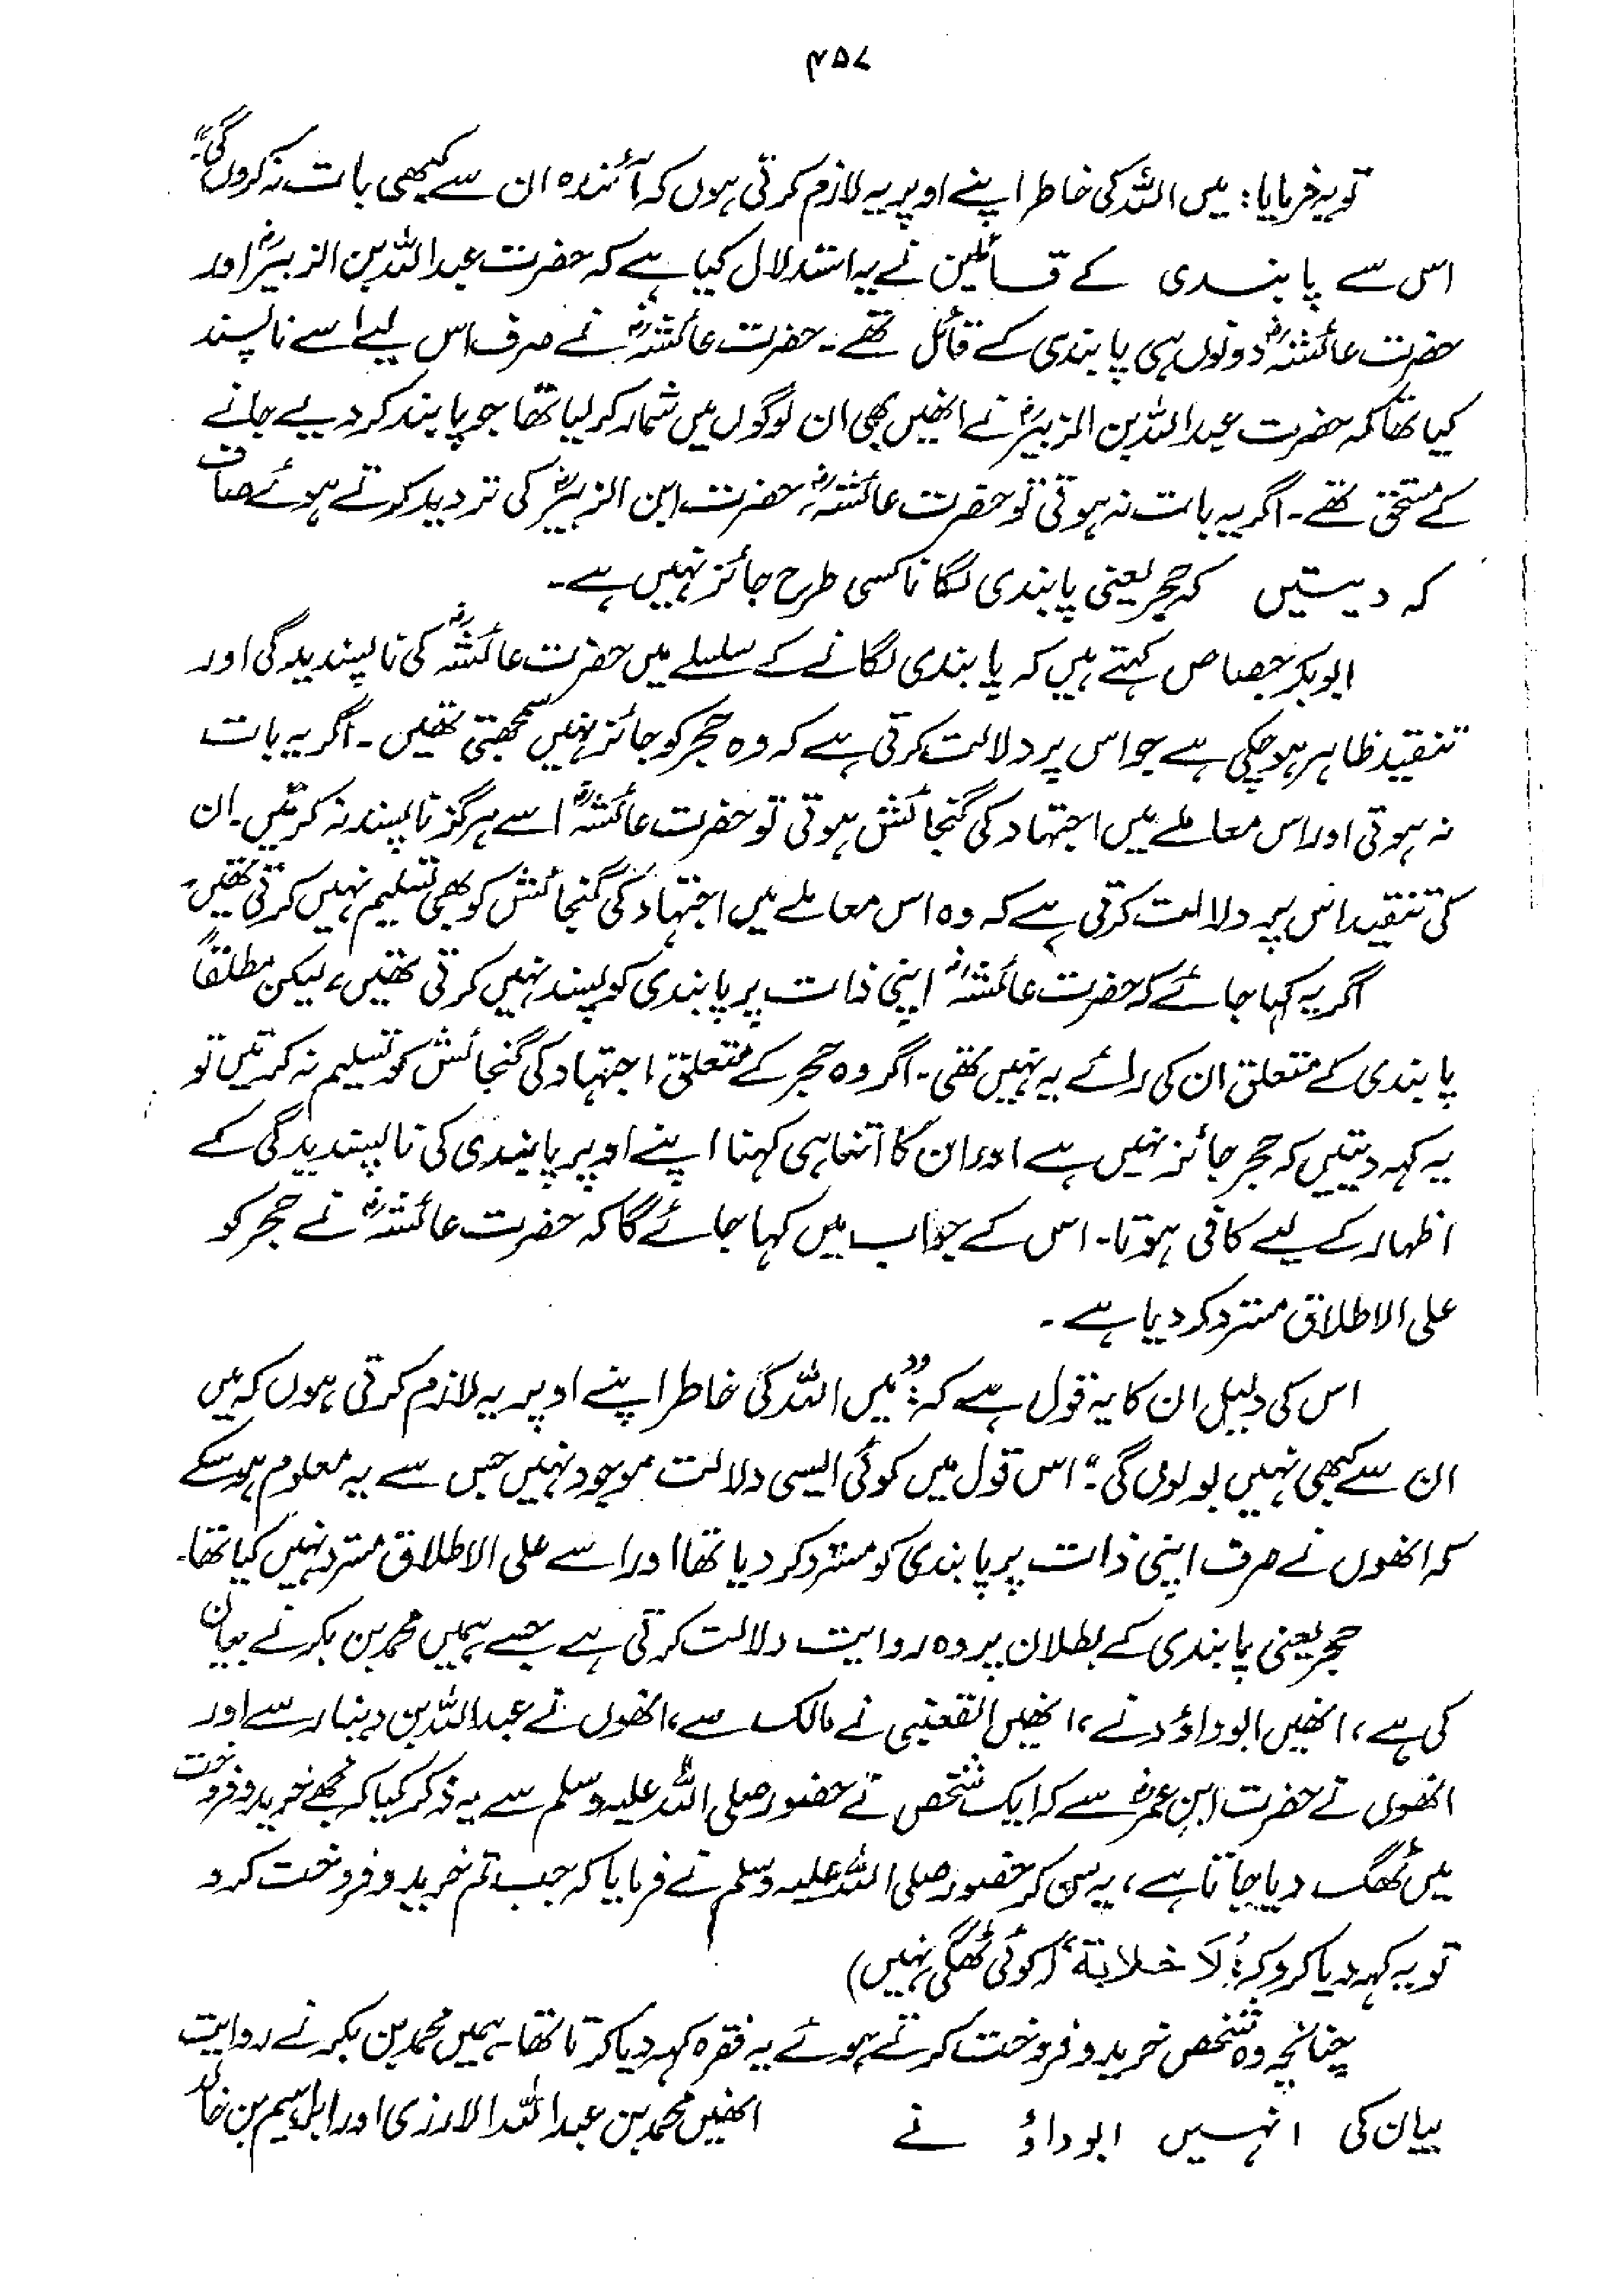 ۴۵۷
تو یہ فرمایا: میں اللہ کی خاطر اپنے اوپر یہ لازم کرتی ہوں کہ آئندہ ان سے کبھی بات نہ کروں گی۔"
اس سے پابندی کے قائلین نے یہ استدلال کیا ہے کہ حضرت عبداللہ بن الزبیرؓ اور
حضرت عائشہؓ دونوں ہی پابندی کے قائل تھے۔ حضرت عائشہؓ نے صرف اس لیے اسے ناپسند
کیا تھا کہ حضرت عبداللہ بن الزبیرؓ نے انھیں بھی ان لوگوں میں شمار کر لیا تھا جو پابند کر دیے جانے
کے مستحق تھے۔ اگر یہ بات نہ ہوتی تو حضرت عائشہؓ، حضرت ابن الزبیرؓ کی تردید کرتے ہوئے صاف
کہ دیتیں کہ حجر یعنی پابندی لگانا کسی طرح جائز نہیں ہے۔
ابوبکر جصاص کہتے ہیں کہ پابندی لگانے کے سلسلے میں حضرت عائشہؓ کی ناپسندیدگی اور
تنقید ظاہر ہو چکی ہے جو اس پر دلالت کرتی ہے کہ وہ حجر کو جائز نہیں سمجھتی تھیں۔ اگر یہ بات
نہ ہوتی اور اس معاملے میں اجتہاد کی گنجائش ہوتی تو حضرت عائشہؓ اسے ہرگز ناپسند نہ کرتیں۔ ان
کی تنقید اس پر دلالت کرتی ہے کہ وہ اس معاملے میں اجتہاد کی گنجائش کو بھی تسلیم نہیں کرتی تھیں۔
اگر یہ کہا جائے کہ حضرت عائشہؓ اپنی ذات پر پابندی کو پسند نہیں کرتی تھیں، لیکن مطلقاً
پابندی کے متعلق ان کی رائے یہ نہیں تھی۔ اگر وہ حجر کے متعلق اجتہاد کی گنجائش کو تسلیم نہ کرتیں تو
یہ کہہ دیتیں کہ حجر جائز نہیں ہے اور ان کا اتنا ہی کہنا اپنے اوپر پابندی کی ناپسندیدگی کے
اظہار کے لیے کافی ہوتا۔ اس کے جواب میں کہا جائے گا کہ حضرت عائشہؓ نے حجر کو
علی الاطلاق مسترد کر دیا ہے۔
اس کی دلیل ان کا یہ قول ہے کہ: "میں اللہ کی خاطر اپنے اوپر یہ لازم کرتی ہوں کہ میں
ان سے کبھی نہیں بولوں گی" اس قول میں کوئی ایسی دلالت موجود نہیں جس سے یہ معلوم ہو سکے
کہ انھوں نے صرف اپنی ذات پر پابندی کو مسترد کر دیا تھا اور اسے علی الاطلاق مسترد نہیں کیا تھا۔
حجر یعنی پابندی کے بطلان پر وہ روایت دلالت کرتی ہے جسے ہمیں محمد بن بکر نے بیان
کی ہے، انھیں ابوداؤد نے، انھیں القعنبی نے مالک سے، انھوں نے عبداللہ بن دینار سے اور
انھوں نے حضرت ابن عمرؓ سے کہ ایک شخص نے حضور صلی اللہ علیہ وسلم سے یہ ذکر کیا کہ مجھے خرید و فروخت
میں ٹھگ دیا جاتا ہے، یہ سن کر حضور صلی اللہ علیہ وسلم نے فرمایا کہ جب تم خرید و فروخت کرو
تو یہ کہہ دیا کرو کہ: لَا خلابۃ" (کوئی ٹھگی نہیں)
چنانچہ وہ شخص خرید و فروخت کرتے ہوئے یہ فقرہ کہہ دیا کرتا تھا۔ ہمیں محمد بن بکر نے روایت
بیان کی انہیں ابوداؤ نے انھیں محمد بن عبداللہ الارزی اور ابراہیم بن خالد